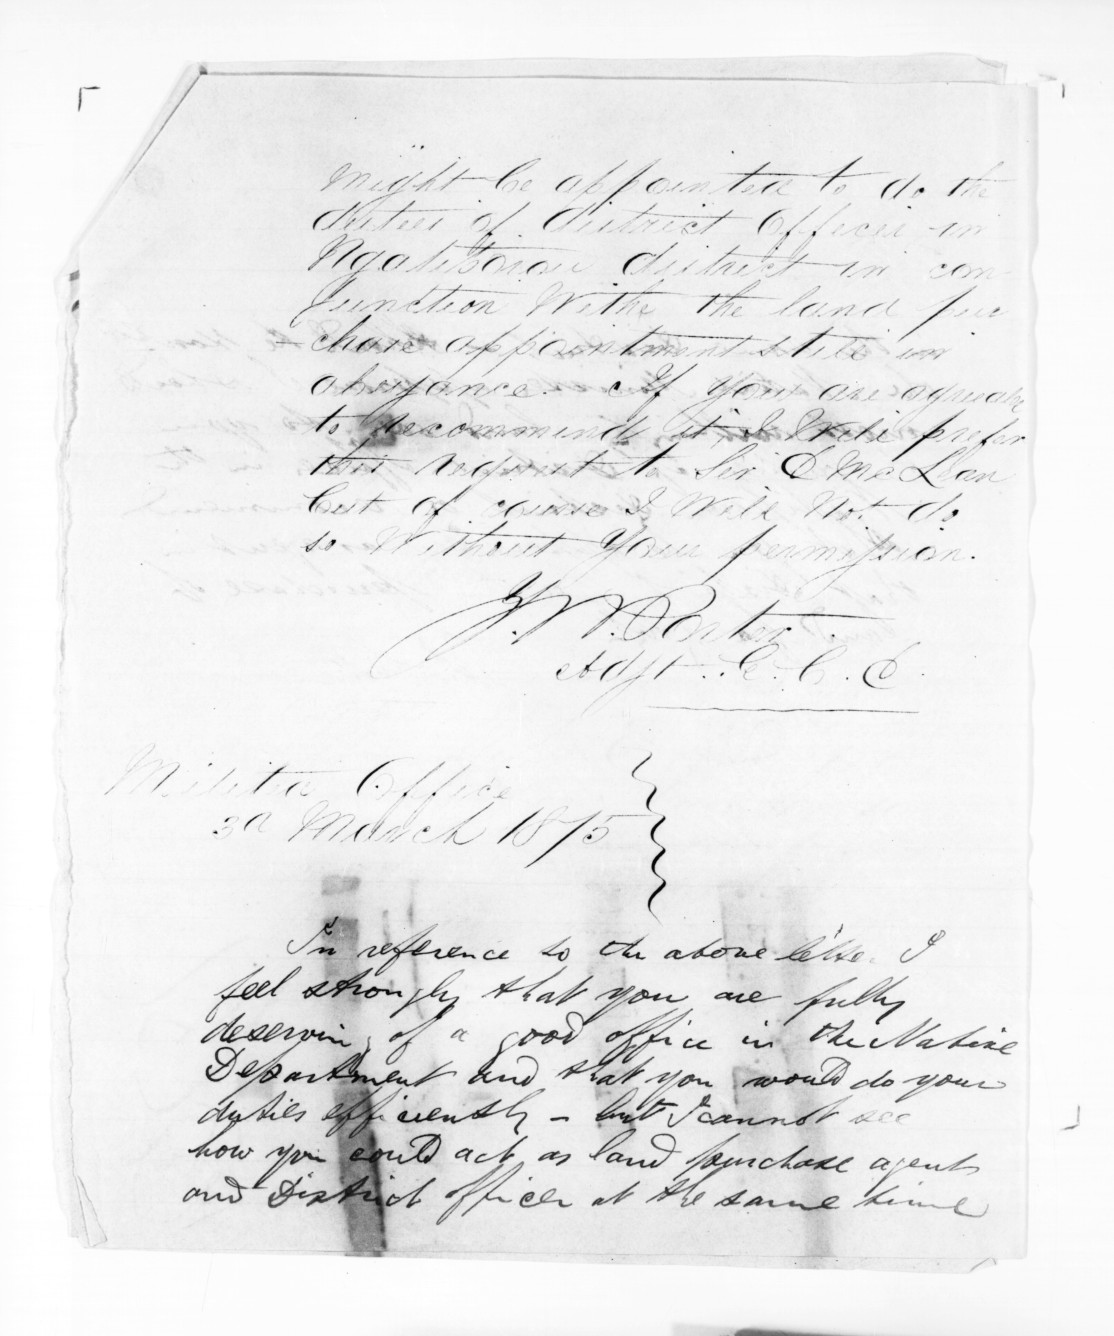 might be appointed to do the
duties of district Officer in
Ngatiporou district in con
junction Withe the land pur
chase appointment still in
abeyance. If you are agreeable
to recommend it I Will prefer
this request to Sir D McLean
but of course I Will Not do
so Without your permission.
J. W. Porter.
Adjt. E. C. C. D.
Militia Office
3d March 1875
In reference to the above letter I
feel strongly that you are fully
deserving of a good office in the Native
Department and that you would do your
duties efficiently – but I cannot see
how you could act as land purchase agent
and District officer at the same time